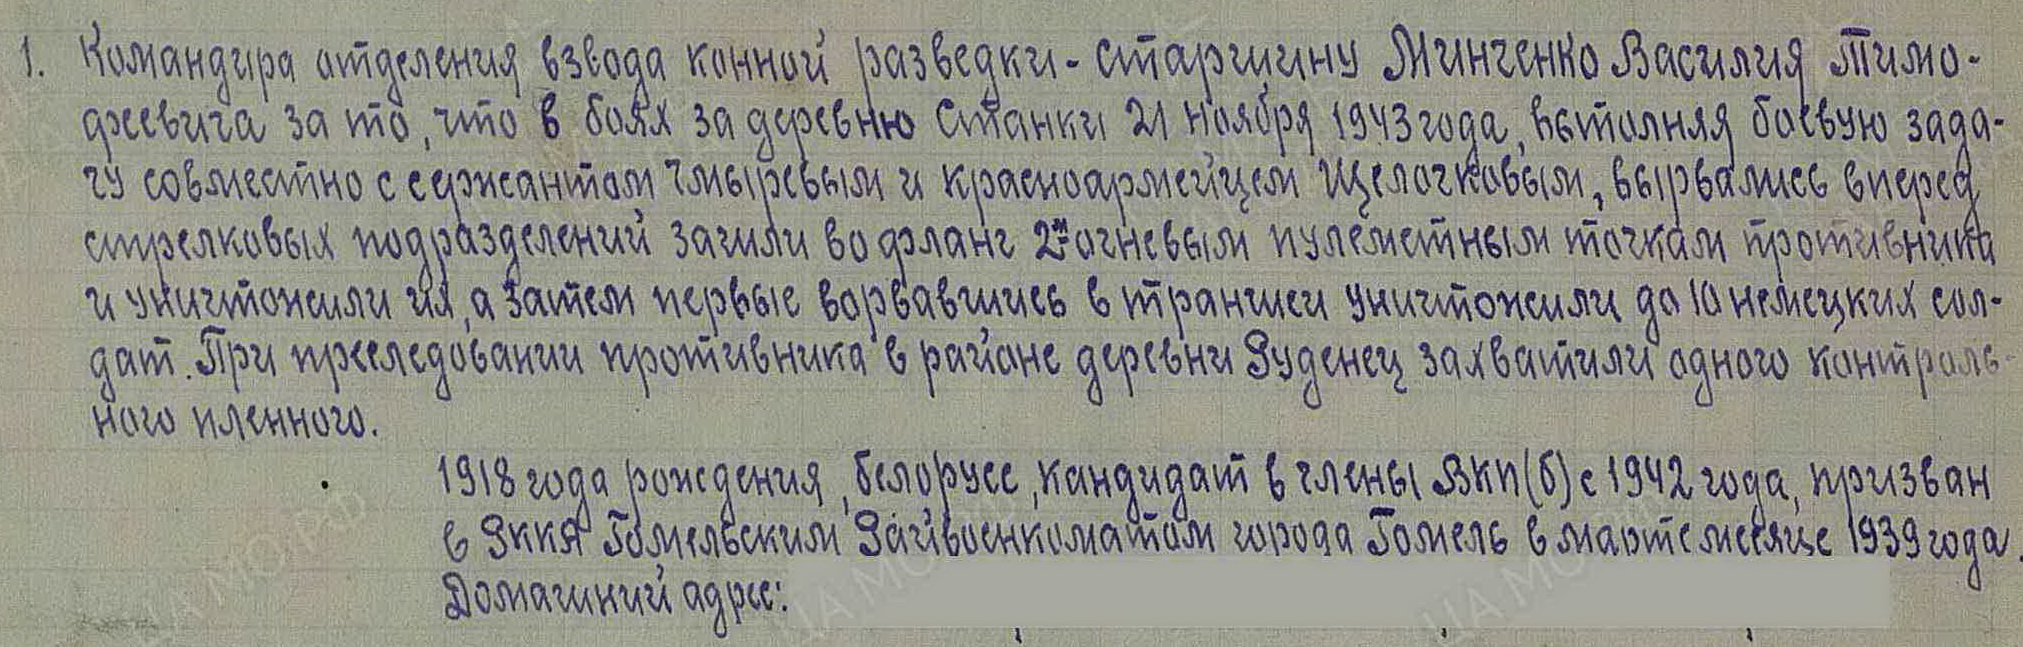 1. Командира отделения взвода конной разведки - старшину Минченко Василия Тимо-
феевича за то, что в боях за деревню Станки 21 ноября 1943 года, выполняя боевую зада-
чу совместно с сержантом Чмыревым и красноармейцем Щелочковым, вырвались вперед
стрелковых подразделений зашли во фланг 2ум огневым пулеметным точкам противника
и уничтожили их, а затем первые ворвавшись в траншеи уничтожили до 10 немецких сол-
дат. При преследовании противника в районе деревни Руденец захватили одного контроль-
ного пленного.
1918 года рождения, белорусс, кандидат в члены ВКП(б) с 1942 года, призван
в РККА Гомельским Райвоенкоматом города Гомель в марте месяце 1939 года.
Домашний адрес: